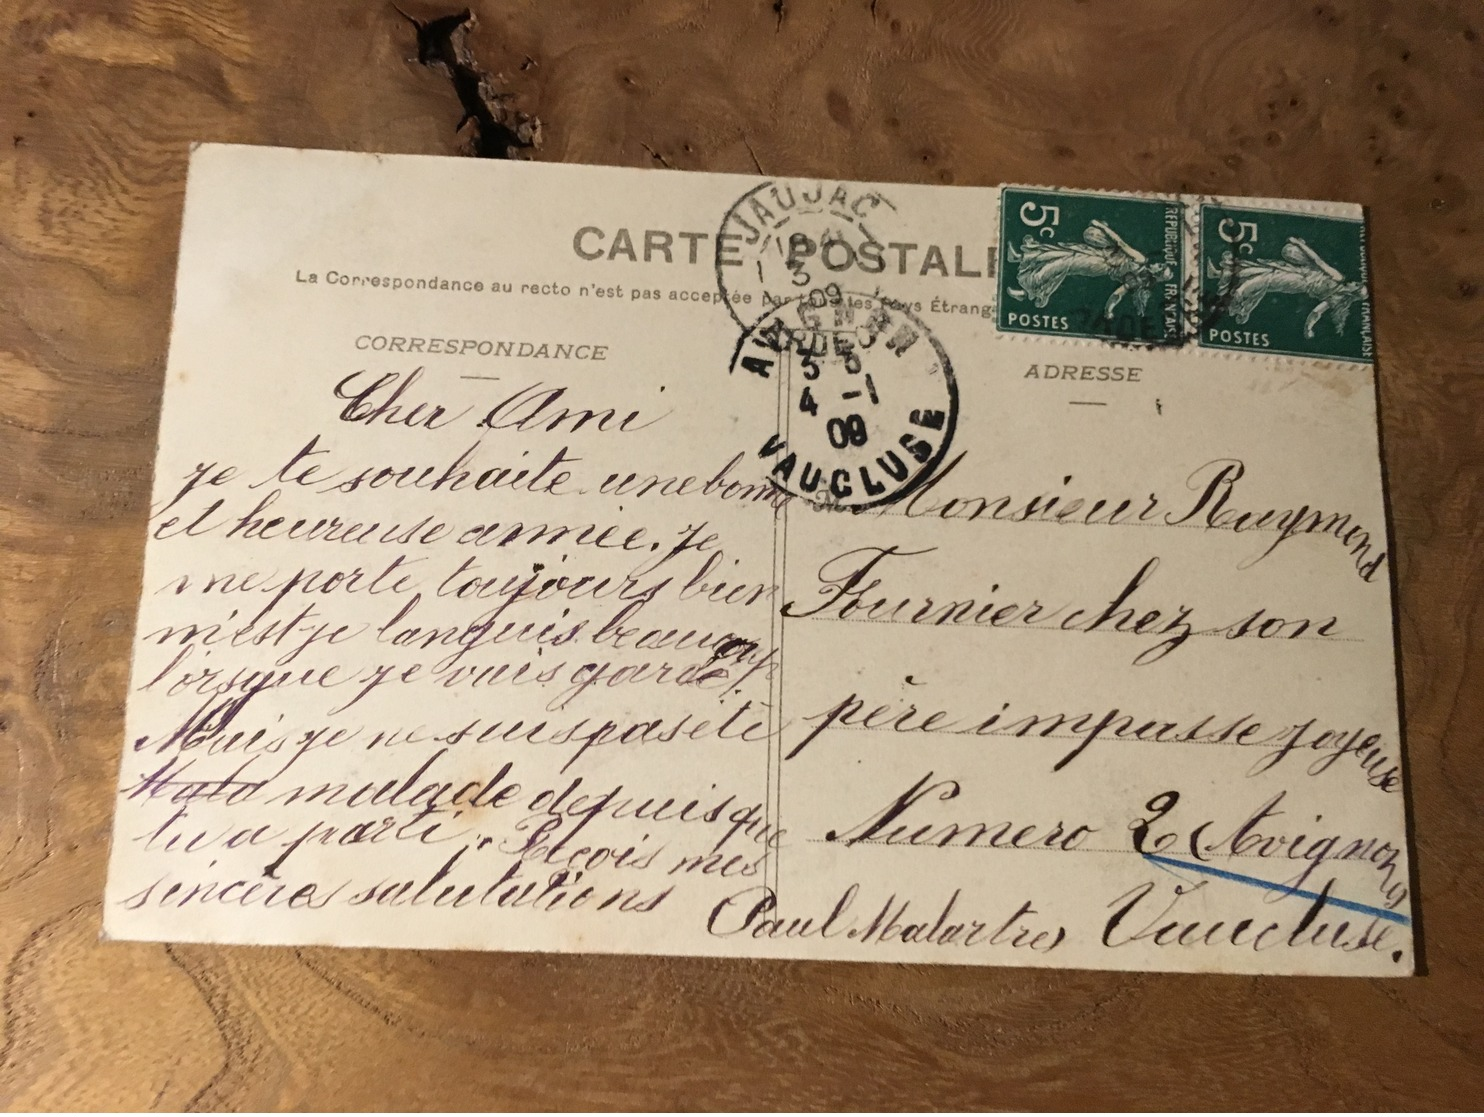 CARTE POSTALE
La Correspondance au recto n'est pas acceptée par tous les pays Étrang
CORRESPONDANCE
ADRESSE
JAUJAC
3
09
AVIGNON
4 -1
09
VAUCLUSE
5c
RÉPUBLIQUE FRANÇAISE
POSTES
5c
FRANÇAISE
POSTES
Cher Ami
je te souhaite une bonne
et heureuse année. Je
me porte toujours bien
m'est je languis beaucoup
lorsque je vais garder.
Mais je ne suis pas été
malade depuis que
tu a parti. Reçois mes
sincères salutations
Paul Malartre
Monsieur Raymond
Fournier chez son
père impasse joyeuse
Numero 2 Avignon
Vaucluse.